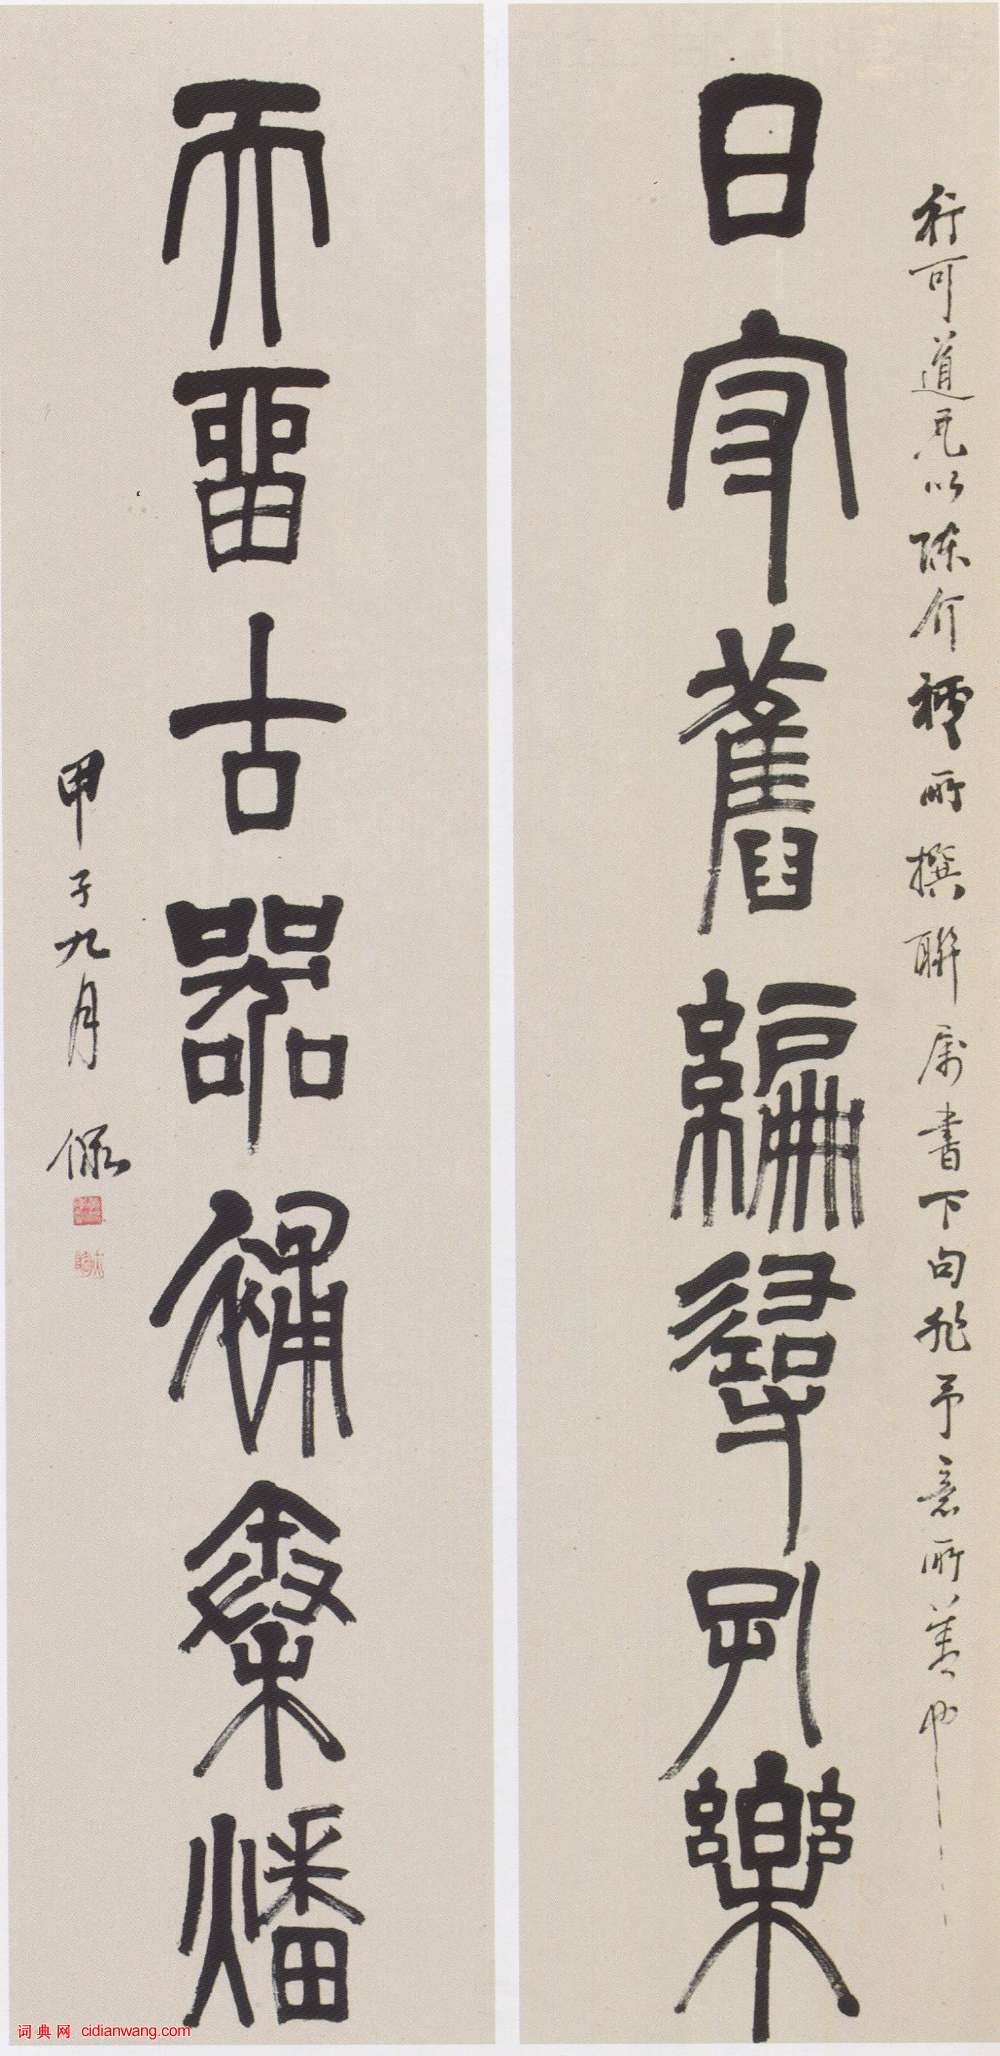 行可道兄以陳介祺所撰聯屬書下句非予意所善也
日守舊編尋孔樂
天畱古器補秦燔
甲子九月
词典网 cidianwang.com